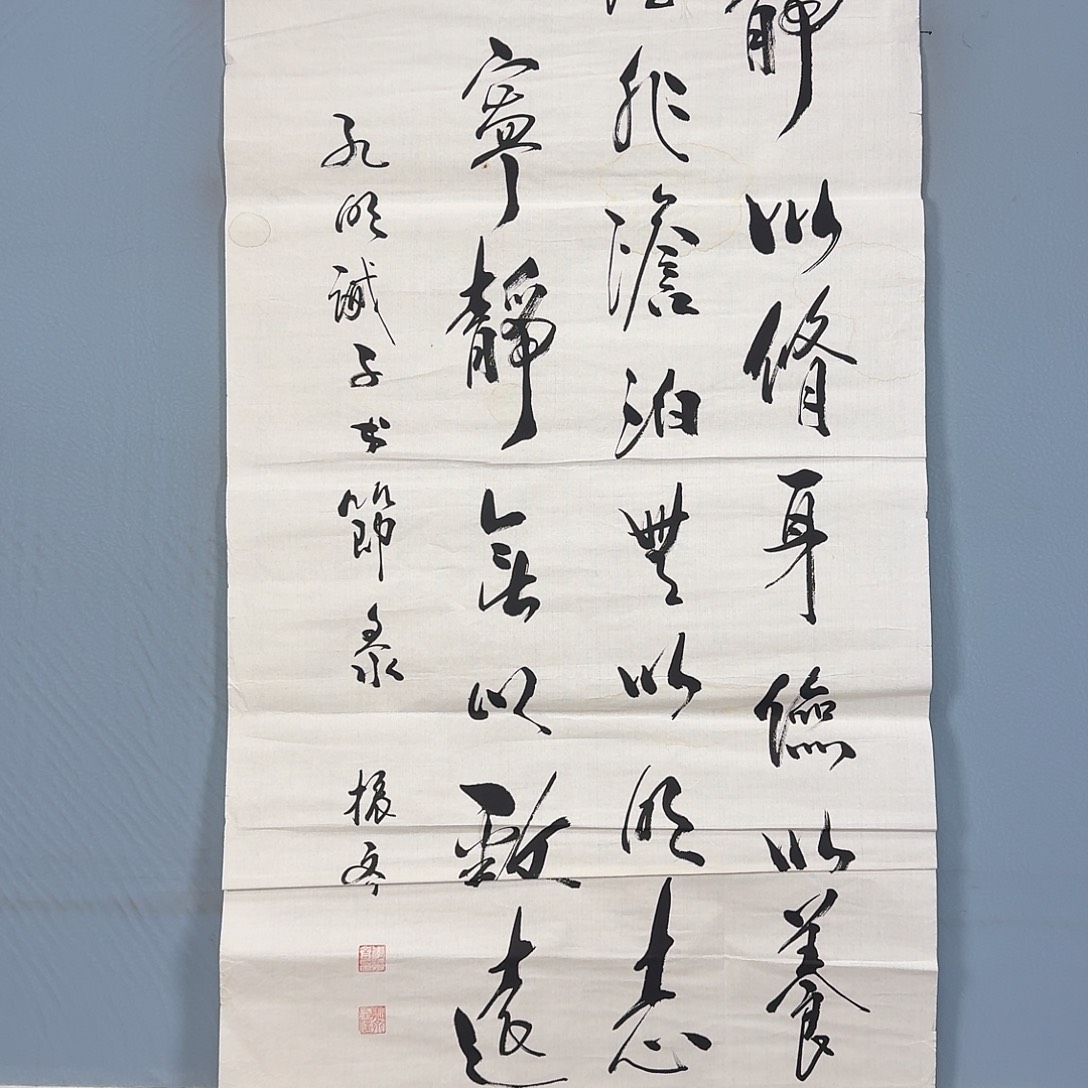 靜以脩身儉以養
德非澹泊無以明志
寧靜無以致遠
孔明誡子書節录
振